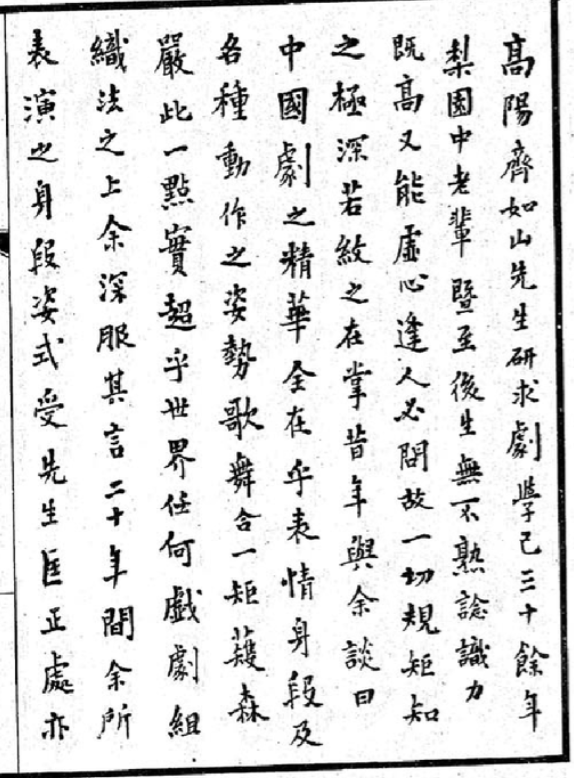 高陽齊如山先生研求劇學已三十餘年
梨園中老輩暨至後生無不熟諗識力
既高又能虛心逢人必問故一切規矩知
之極深若紋之在掌昔年與余談曰
中國劇之精華全在乎表情身段及
各種動作之姿勢歌舞合一矩蒦森
嚴此一點實超乎世界任何戲劇組
織法之上余深服其言二十年間余所
表演之身段姿式受先生匡正處亦